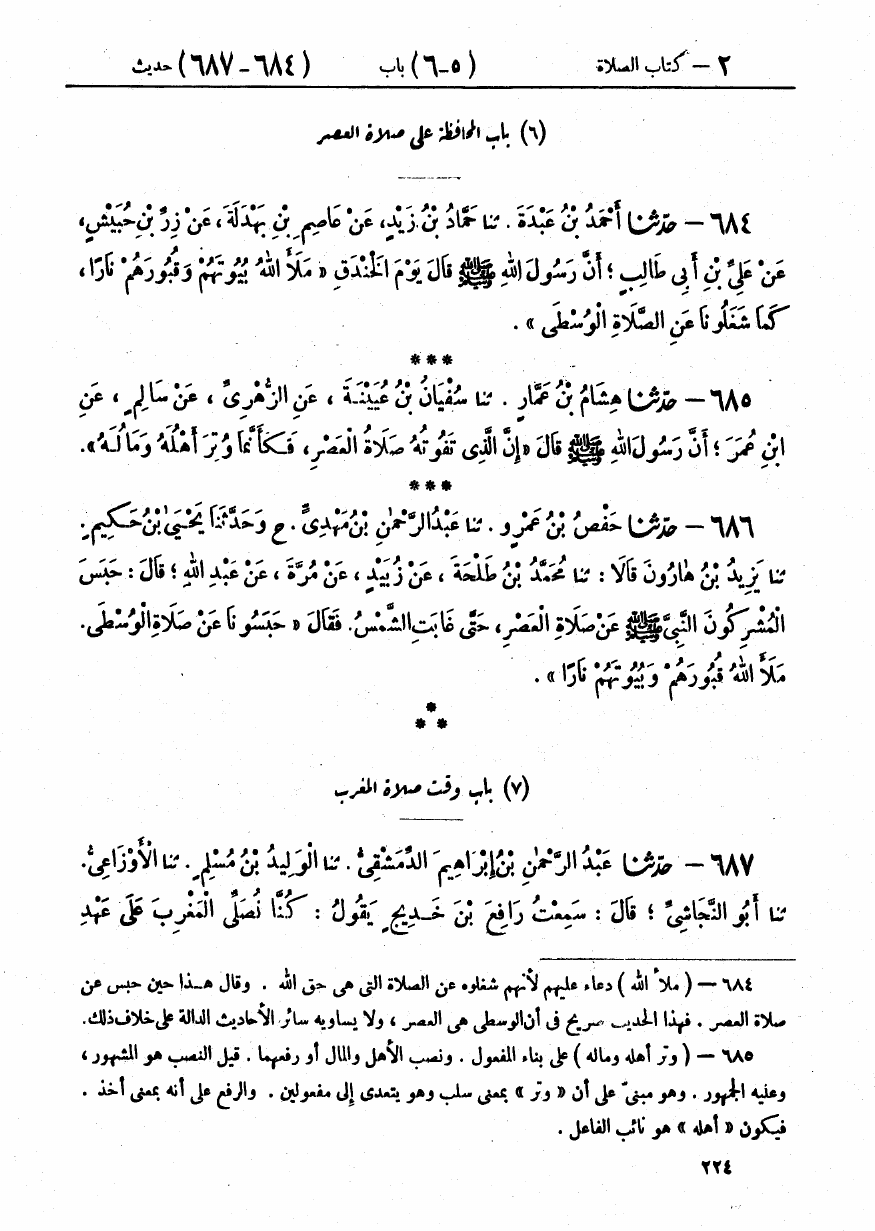 ٢ – كتاب الصلاة (٥-٦) باب (٦٨٤-٦٨٧) حديث
(٦) باب المحافظة على صلاة العصر
٦٨٤ – حَدَّثَنَا أَحْمَدُ بْنُ عَبْدَةَ . ثنا حَمَّادُ بْنُ زَيْدٍ، عَنْ عَاصِمِ بْنِ بَهْدَلَةَ، عَنْ زِرِّ بْنِ حُبَيْشٍ،
عَنْ عَلِيِّ بْنِ أَبِي طَالِبٍ ؛ أَنَّ رَسُولَ اللهِ ﷺ قَالَ يَوْمَ الْخَنْدَقِ « مَلَأَ اللهُ بُيُوتَهُمْ وَقُبُورَهُمْ نَارًا،
كَمَا شَغَلُونَا عَنِ الصَّلَاةِ الْوُسْطَى » .
***
٦٨٥ – حَدَّثَنَا هِشَامُ بْنُ عَمَّارٍ . ثنا سُفْيَانُ بْنُ عُيَيْنَةَ ، عَنِ الزُّهْرِيِّ ، عَنْ سَالِمٍ ، عَنِ
ابْنِ عُمَرَ ؛ أَنَّ رَسُولَ اللهِ ﷺ قَالَ «إِنَّ الَّذِي تَفُوتُهُ صَلَاةُ الْعَصْرِ، فَكَأَنَّمَا وُتِرَ أَهْلُهُ وَمَالُهُ».
***
٦٨٦ – حَدَّثَنَا حَفْصُ بْنُ عَمْرٍو . ثنا عَبْدُ الرَّحْمٰنِ بْنُ مَهْدِيٍّ . ح وَحَدَّثَنَا يَحْيَىٰ بْنُ حَكِيمٍ.
ثنا يَزِيدُ بْنُ هَارُونَ قَالَا : ثنا مُحَمَّدُ بْنُ طَلْحَةَ ، عَنْ زُبَيْدٍ ، عَنْ مُرَّةَ ، عَنْ عَبْدِ اللهِ ؛ قَالَ : حَبَسَ
الْمُشْرِكُونَ النَّبِيَّ ﷺ عَنْ صَلَاةِ الْعَصْرِ، حَتَّى غَابَتِ الشَّمْسُ. فَقَالَ « حَبَسُونَا عَنْ صَلَاةِ الْوُسْطَى.
مَلَأَ اللهُ قُبُورَهُمْ وَبُيُوتَهُمْ نَارًا » .
*
* *
(٧) باب وقت صلاة المغرب
٦٨٧ – حَدَّثَنَا عَبْدُ الرَّحْمٰنِ بْنُ إِبْرَاهِيمَ الدِّمَشْقِيُّ . ثنا الْوَلِيدُ بْنُ مُسْلِمٍ . ثنا الْأَوْزَاعِيُّ.
ثنا أَبُو النَّجَاشِيِّ ؛ قَالَ : سَمِعْتُ رَافِعَ بْنَ خَدِيجٍ يَقُولُ : كُنَّا نُصَلِّي الْمَغْرِبَ عَلَى عَهْدِ
٦٨٤ – ( ملأ الله ) دعاء عليهم لأنهم شغلوه عن الصلاة التى هى حق الله . وقال هذا حين حبس عن
صلاة العصر . فهذا الحديث صريح فى أن الوسطى هى العصر ، ولا يساويه سائر الأحاديث الدالة على خلاف ذلك.
٦٨٥ – ( وتر أهله وماله ) على بناء المفعول . ونصب الأهل والمال أو رفعهما . قيل النصب هو المشهور ،
وعليه الجمهور . وهو مبنىّ على أن « وتر » بمعنى سلب وهو يتعدى إلى مفعولين . والرفع على أنه بمعنى أخذ .
فيكون « أهله » هو نائب الفاعل .
٢٢٤